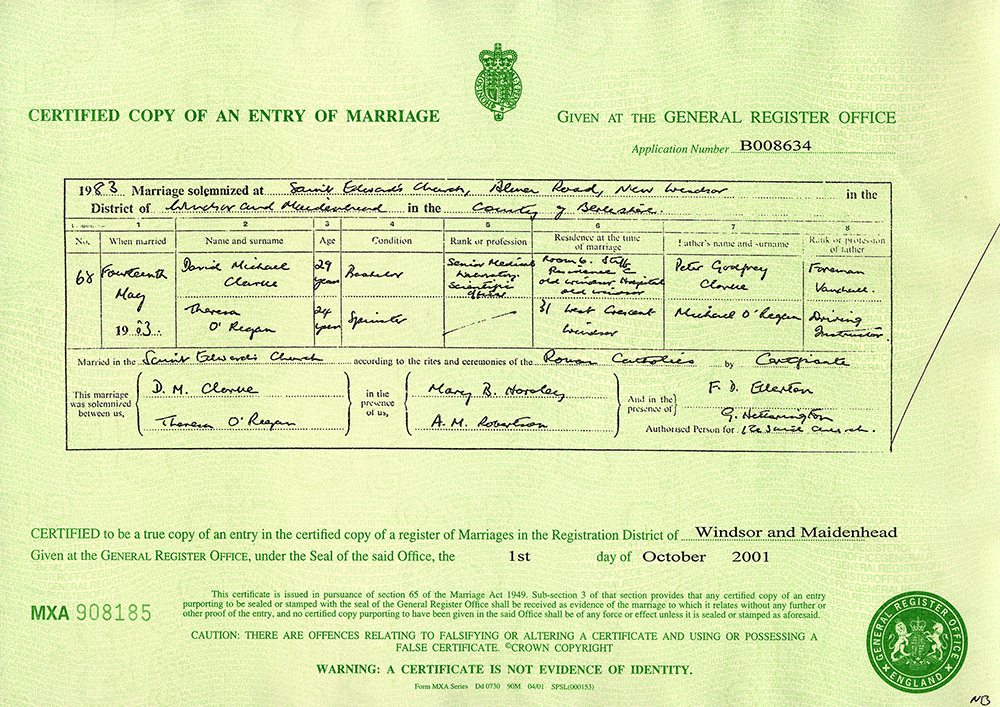 CERTIFIED COPY OF AN ENTRY OF MARRIAGE
GIVEN AT THE GENERAL REGISTER OFFICE
Application Number B008634
1983 Marriage solemnized at Saint Edward's Church, Alma Road, New Windsor in the
District of Windsor and Maidenhead in the County of Berkshire.
1 2 3 4 5 6 7 8
No. When married Name and surname Age Condition Rank or profession Residence at the time of marriage Father's name and surname Rank or profession of father
68 Fourteenth May 1983. David Michael Clarke 29 years Bachelor Senior Medical Laboratory Scientific Officer Room 6. Staff Residence C Old Windsor Hospital Old Windsor Peter Godfrey Clarke Foreman Vauxhall.
Theresa O'Regan 24 years Spinster 31 West Crescent Windsor Michael O'Regan Driving Instructor.
Married in the Saint Edward's Church according to the rites and ceremonies of the Roman Catholics by Certificate
This marriage was solemnized between us, D. M. Clarke Theresa O'Regan in the presence of us, Mary B. Horsley A. M. Robertson And in the presence of F. D. Ellerton G. Hetherington
Authorised Person for the said church.
CERTIFIED to be a true copy of an entry in the certified copy of a register of Marriages in the Registration District of Windsor and Maidenhead
Given at the GENERAL REGISTER OFFICE, under the Seal of the said Office, the 1st day of October 2001
MXA 908185
This certificate is issued in pursuance of section 65 of the Marriage Act 1949. Sub-section 3 of that section provides that any certified copy of an entry
purporting to be sealed or stamped with the seal of the General Register Office shall be received as evidence of the marriage to which it relates without any further or
other proof of the entry, and no certified copy purporting to have been given in the said Office shall be of any force or effect unless it is sealed or stamped as aforesaid.
CAUTION: THERE ARE OFFENCES RELATING TO FALSIFYING OR ALTERING A CERTIFICATE AND USING OR POSSESSING A
FALSE CERTIFICATE. ©CROWN COPYRIGHT
WARNING: A CERTIFICATE IS NOT EVIDENCE OF IDENTITY.
Form MXA Series Dd 0730 90M 04/01 SPSL(000153)
GENERAL REGISTER OFFICE
ENGLAND
NB